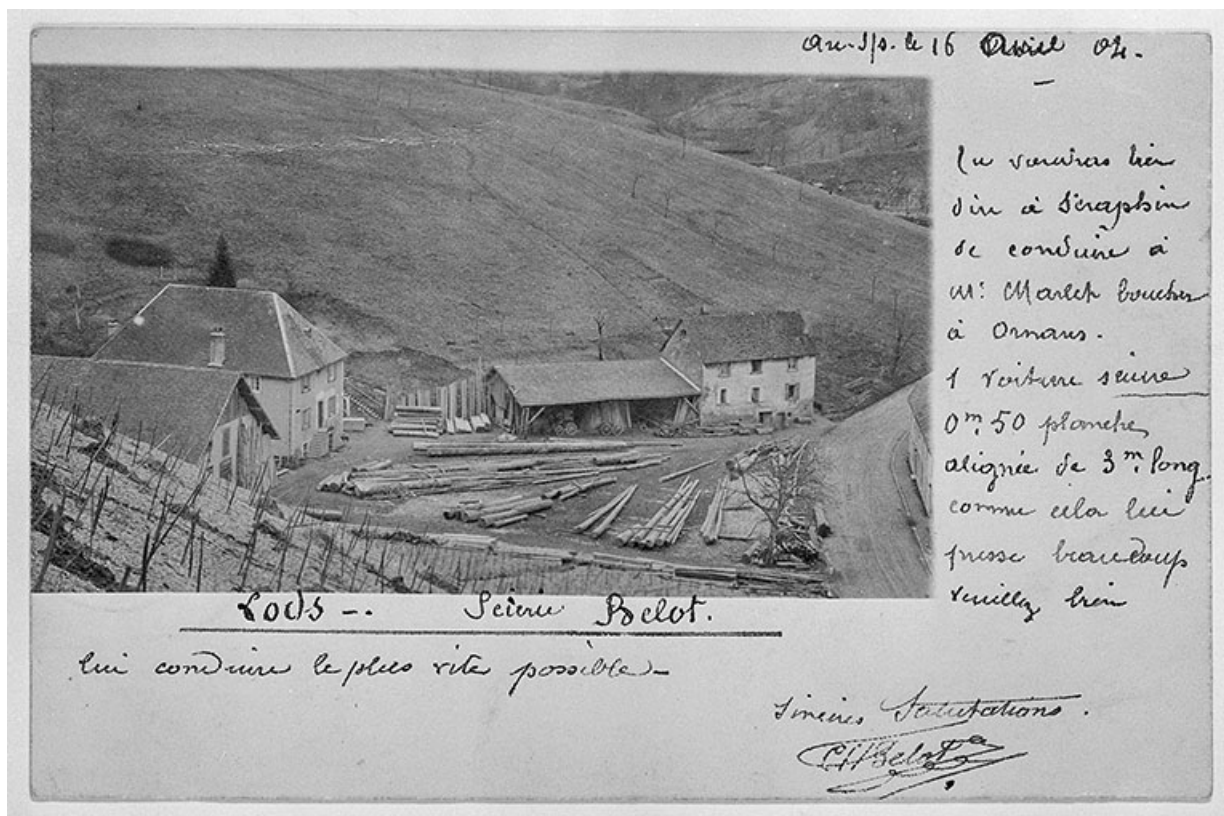 le 16 Avril 04.
Tu voudras bien
dire à Séraphin
de conduire à
Mr. Marlet boucher
à Ornans.
1 voiture sciure
0m,50 planches
alignée de 3m. long
comme cela lui
presse beaucoup
veuillez bien
LODS -. Scierie Belot.
lui conduire le plus vite possible -
Sincères Salutations.
Belot